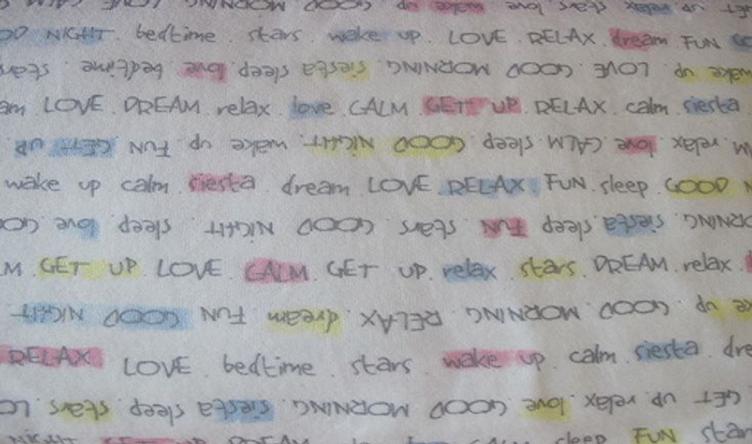 GET UP relax stars love wake up GOOD MORNING LOVE
OD NIGHT . bedtime . stars . wake up . LOVE . RELAX . dream . FUN
wake up . LOVE . GOOD MORNING . siesta . sleep . love . bedtime . stars
am . LOVE . DREAM . relax . love . CALM . GET UP . RELAX . calm . siesta
M . relax . love . CALM . sleep . GOOD NIGHT . wake up . FUN . GET UP
wake up . calm . siesta . dream . LOVE . RELAX . FUN . sleep . GOOD N
RNING . siesta . sleep . FUN . stars . GOOD NIGHT . sleep . love . GO
M . GET UP . LOVE . CALM . GET UP . relax . stars . DREAM . relax .
ke up . GOOD MORNING . RELAX . dream . FUN . GOOD NIGHT
RELAX . LOVE . bedtime . stars . wake up . calm . siesta . dre
GET UP . relax . love . GOOD MORNING . siesta . sleep . stars . LO
sleep . FUN . star